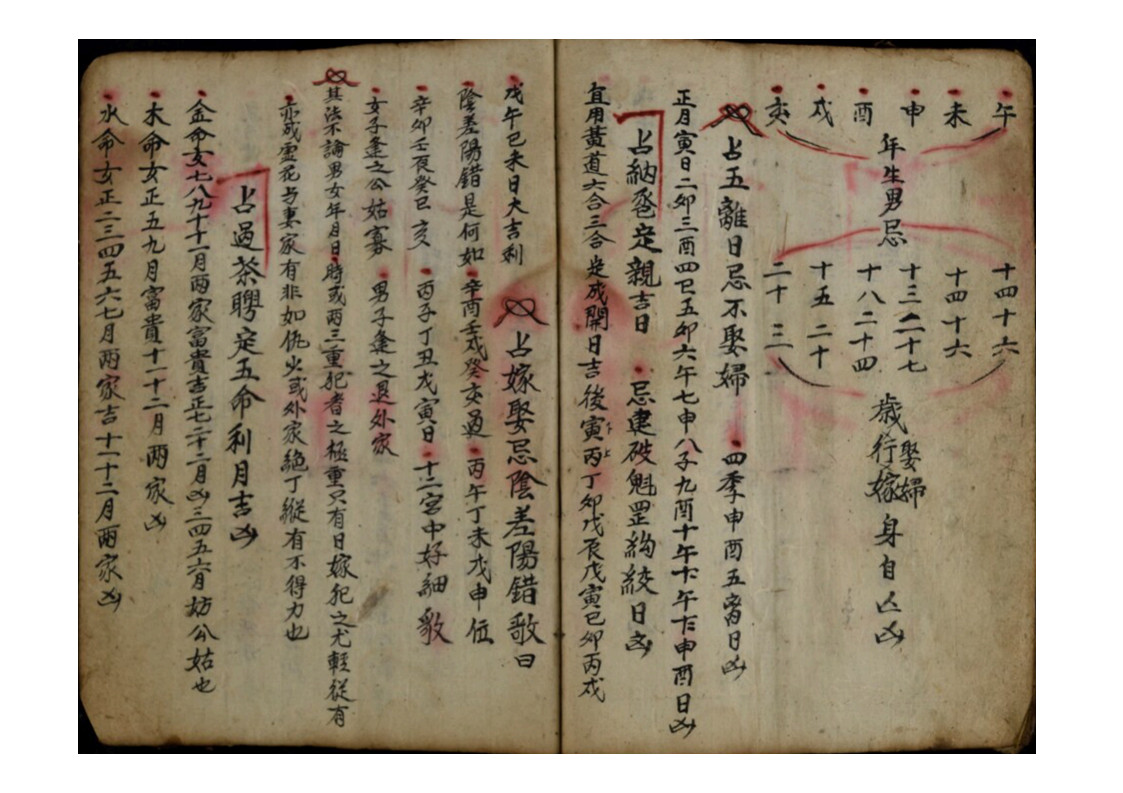 午 十四十六
未 十四十六
申 十三二十七
酉 年生男忌 十八二十四 歲行娶婦嫁身自亡凶
戌 十五二十
亥 二十三
占五離日忌不娶婦 四季申酉五离日凶
正月寅日二卯三酉四巳五卯六午七申八子九酉十午十一午十二申酉日凶
占納 定親吉日 忌建破魁罡絞日凶
宜用黃道六合三合定成開日吉後寅丙丁卯戊辰戊寅己卯丙戌
戊午己未日大吉利
占嫁娶忌陰差陽錯歌曰
陰差陽錯是何如 辛酉壬戌癸亥過 丙午丁未戊申位
辛卯壬辰癸巳亥 丙子丁丑戊寅日 十二宮中好細
女子逢之公姑寡 男子逢之退外家
其法不論男女年月日時或两三重犯者之極重只有日嫁犯之尤輕從有
亦成虛花与妻家有非如仇火或外家絶丁縱有不得力也
占過茶聘定五命利月吉凶
金命女七八九十十一月两家富貴吉正七二十二月凶三四五六月妨公姑也
木命女正五九月富貴十一十二月两家凶
水命女正二三四五六七月两家吉十一十二月两家凶